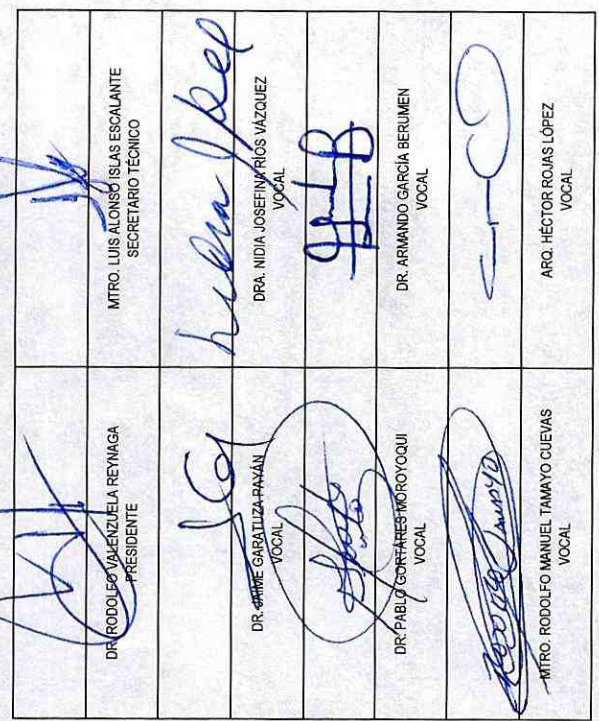 DR. RODOLFO VALENZUELA REYNAGA
PRESIDENTE
MTRO. LUIS ALONSO ISLAS ESCALANTE
SECRETARIO TÉCNICO
DR. JAIME GARATUZA PAYÁN
VOCAL
DRA. NIDIA JOSEFINA RÍOS VÁZQUEZ
VOCAL
DR. PABLO GORTÁRES MOROYOQUI
VOCAL
DR. ARMANDO GARCÍA BERUMEN
VOCAL
Rodolfo Tamayo
MTRO. RODOLFO MANUEL TAMAYO CUEVAS
VOCAL
ARQ. HÉCTOR ROJAS LÓPEZ
VOCAL